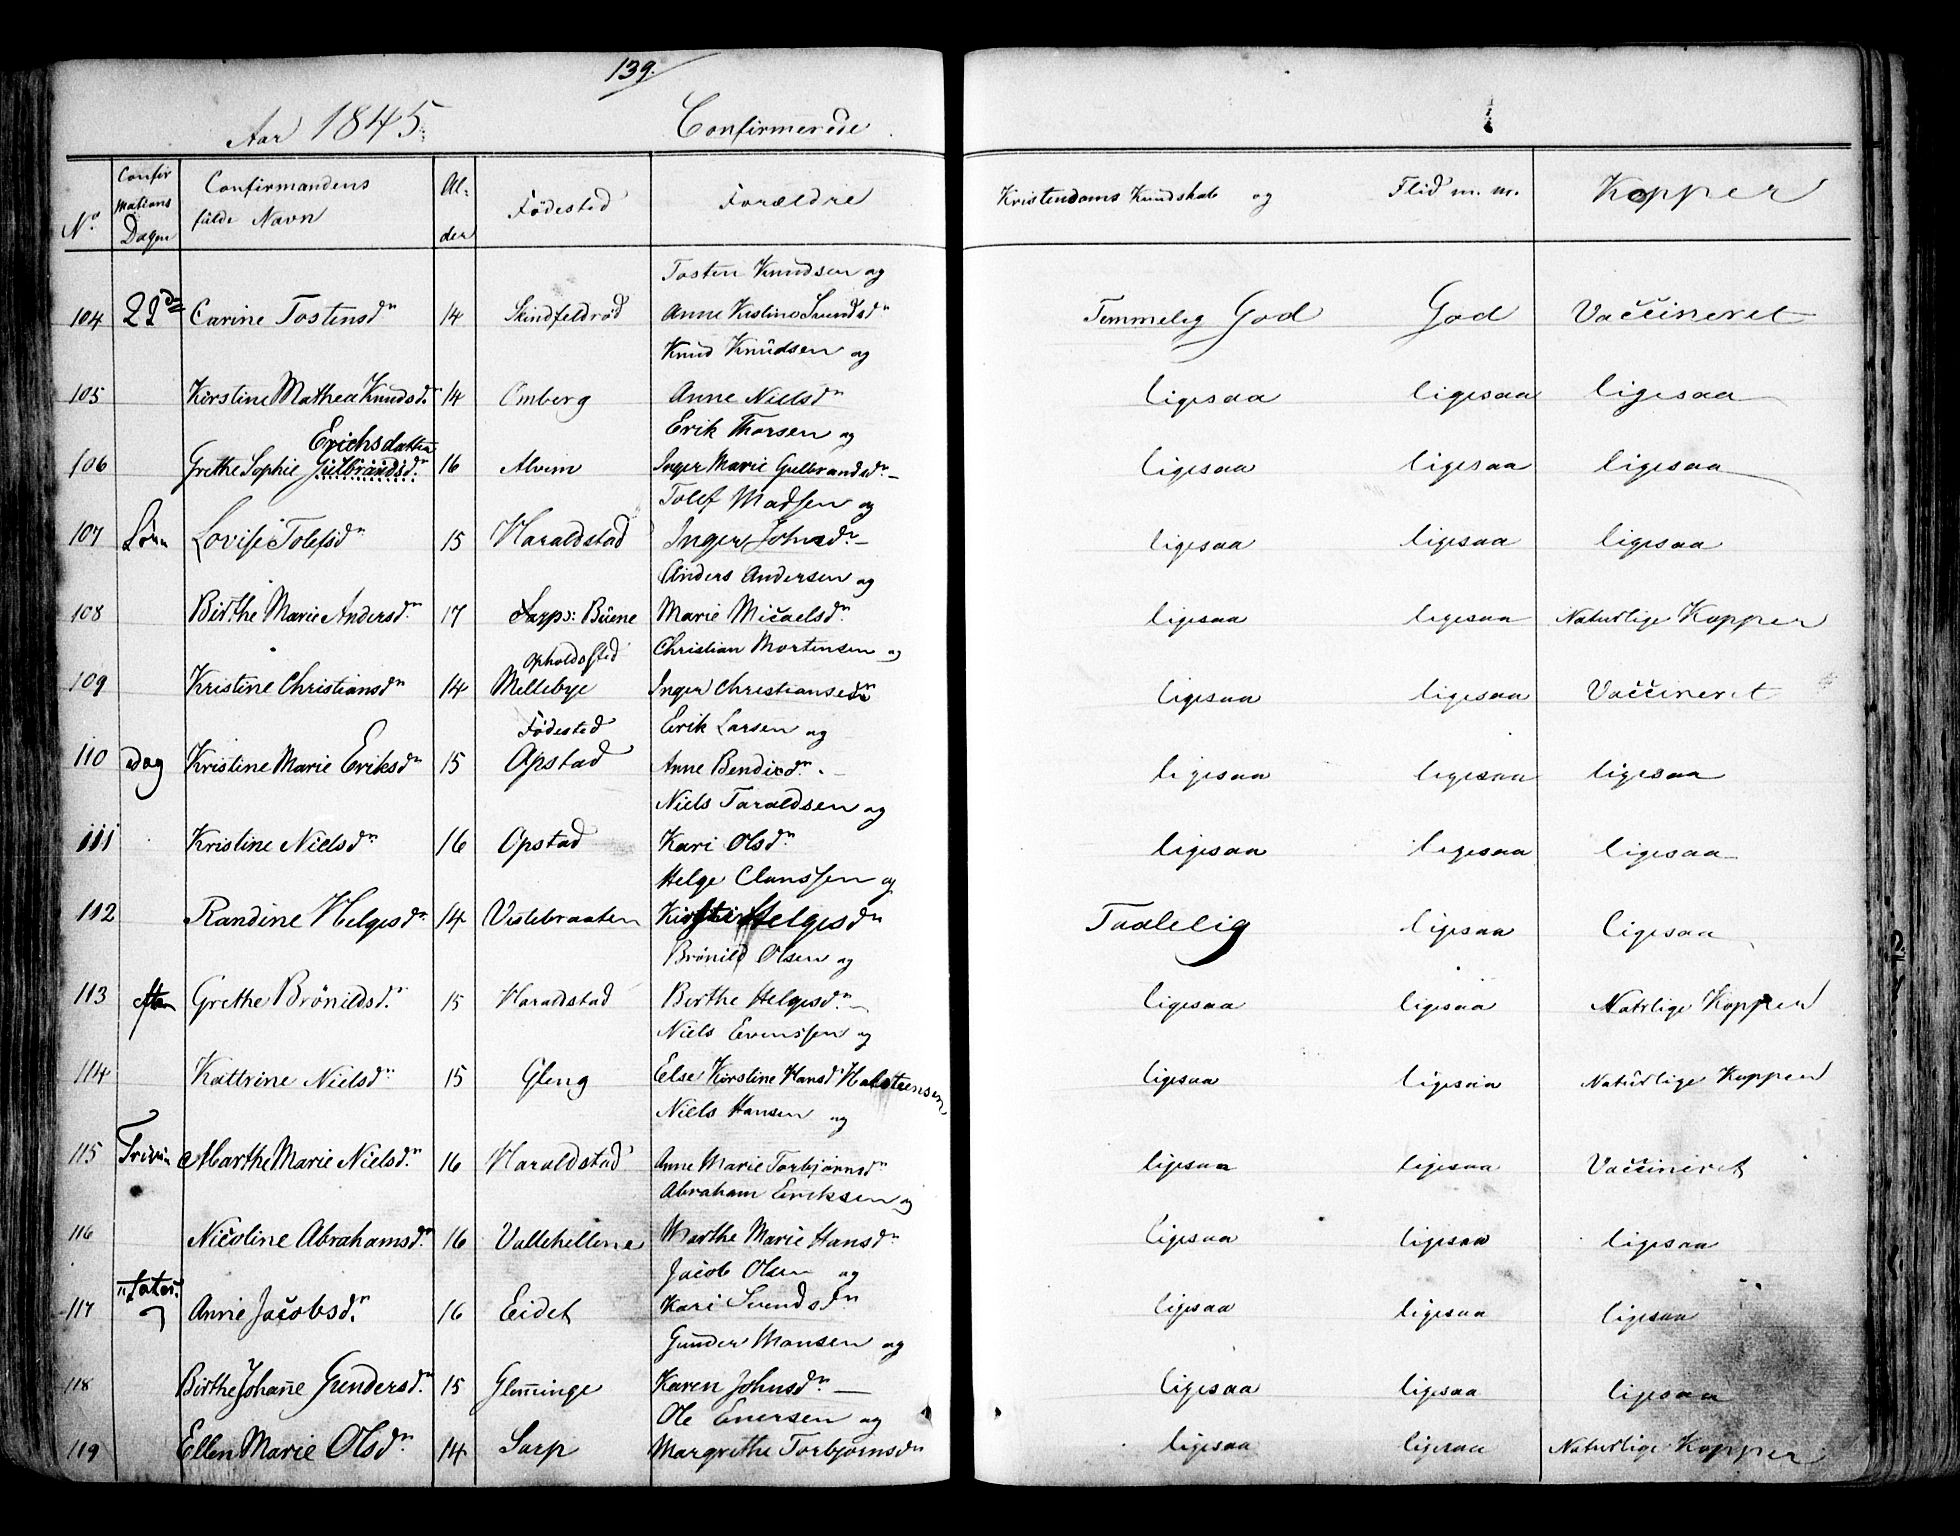 139.
Aar 1845. Confirmerede
No Confirmations Dagen Confirmandens fulde Navn Alder Fødested Forældre Kristendoms Kundskab og Flid m. m. Kopper
Tosten Knudsen og
104 22de Carine Tostensdn 14 Skindfeldrød Anne Kistine Svendsdn Temmelig God God Vaccineret
Knud Knudsen og
105 Kirstine Mathea Knudsd. 14 Omberg Anne Nielsdn ligesaa ligesaa ligesaa
Erichsdatter Erik Thorsen og
106 Grethe Sophie Gulbrandsdn 16 Alvim Inger Marie Gulbrandsdn ligesaa ligesaa ligesaa
Tolef Madsen og
107 Søn Lovise Tolefsdn 15 Haraldstad Inger Johnsdn ligesaa ligesaa ligesaa
Anders Andersen og
108 Birthe Marie Andersdn 17 Sarps: Buene Marie Micaelsdn ligesaa ligesaa Naturlige Kopper
Opholdssted Christian Mortensen og
109 Kristine Christiansdn 14 Mellebye Inger Christiansedn ligesaa ligesaa Vaccineret
Fødested Erik Larsen og
110 dag Kristine Marie Eriksdn 15 Opstad Anne Bendicdn ligesaa ligesaa ligesaa
Niels Taraldsen og
111 Kristine Nielsdn 16 Opstad Kari Olsdn ligesaa ligesaa ligesaa
Helge Clanssen og
112 Randine Helgesdn 14 Vislebraaten Kirsti Helgesdn Taalelig ligesaa ligesaa
Brønild Olsen og
113 efter Grethe Brønildsdn 15 Haraldstad Birthe Helgesdn ligesaa ligesaa Natrlige Kopper
Niels Evenssen og
114 Kattrine Nielsdn 15 Gleng Else Kirstine Hansd Halstensen ligesaa ligesaa Naturlige Kopper
Niels Hansen og
115 Trini Marthe Marie Nielsdn 16 Haraldstad Anne Marie Torbjørnsdn ligesaa ligesaa Vaccineret
Abraham Eriksen og
116 Nicoline Abrahamsdn 16 Vallehellene Marthe Marie Hansdn ligesaa ligesaa ligesaa
Jacob Olsen og
117 tatis Anne Jacobsdn 16 Eidet Kari Svendsdn ligesaa ligesaa ligesaa
Gunder Monsen og
118 Birthe Johanne Gundersdn 15 Glemminge Karen Johnsdn ligesaa ligesaa ligesaa
Ole Enersen og
119 Ellen Marie Olsdn 14 Sarp Margrethe Torbjørnsdn ligesaa ligesaa Naturlige Kopper